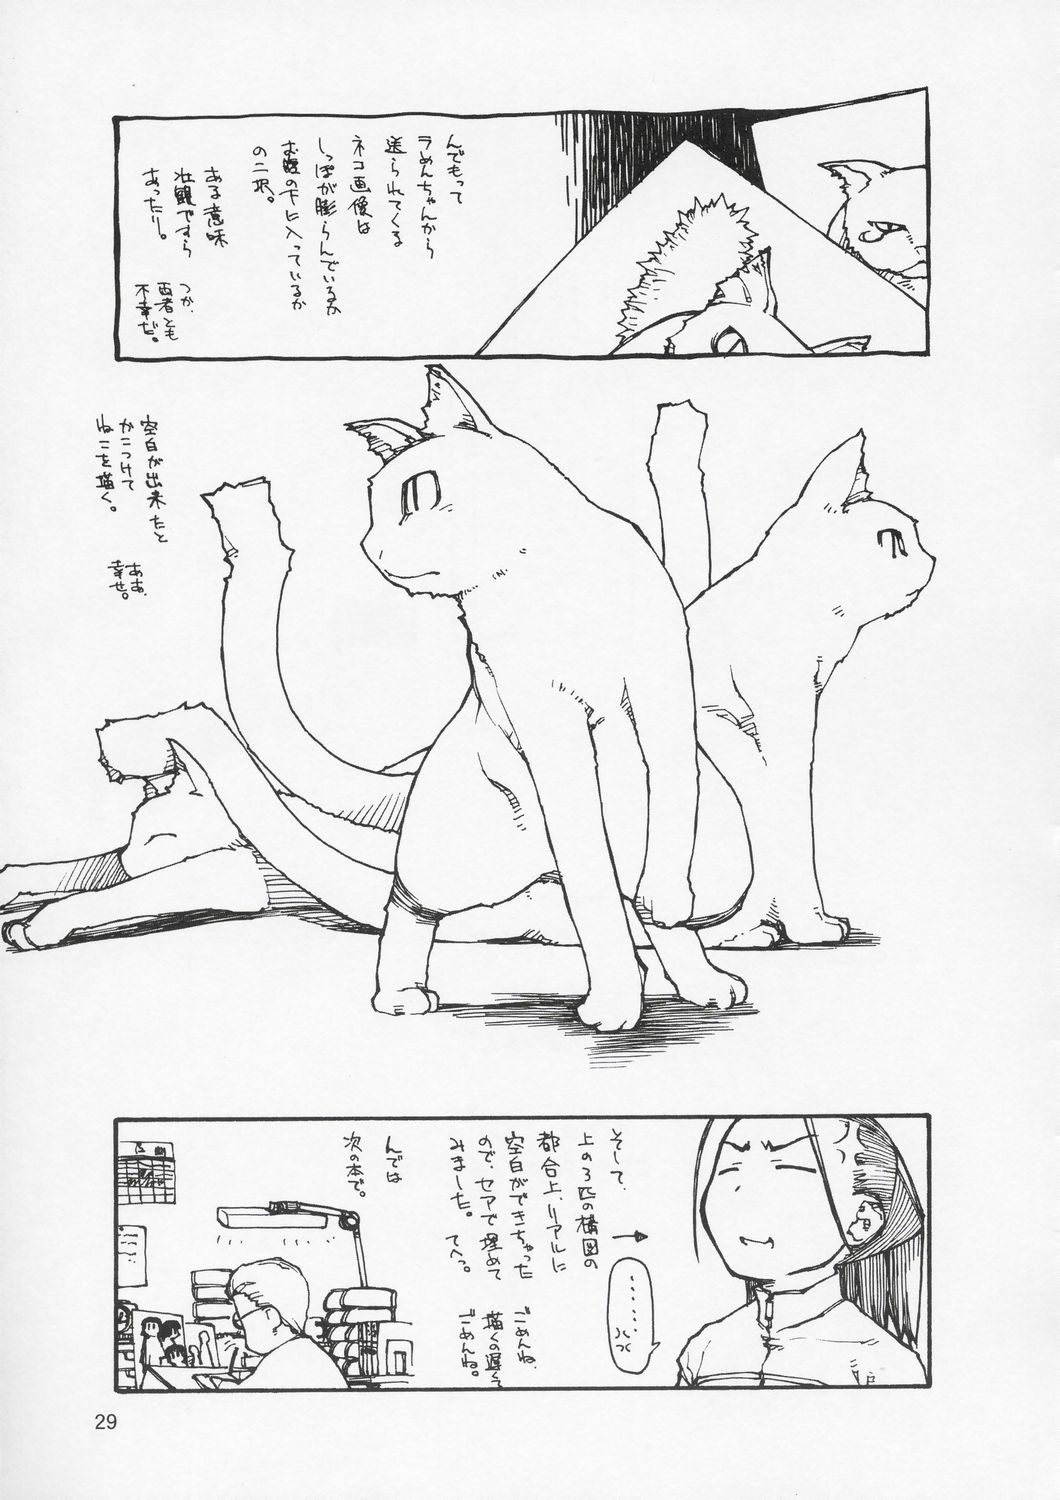 んでもって
ラめんちゃんから
送られてくる
ネコ画像は
しっぽが膨らんでいるか
お腹の下に入っているか
の二択。
ある意味
壮観ですら
あったり。
つか、
両者とも
不幸だ。
空白が出来たと
かこつけて
ねこを描く。
ああ、
幸せ。
そして、
上の3匹の構図の
都合上、リアルに
空白ができちゃった
ので、セアで埋めて
みました。てへっ。
ごめんね、
描くの遅くて
ごめんね。
んでは
次の本で。
‥‥‥
29